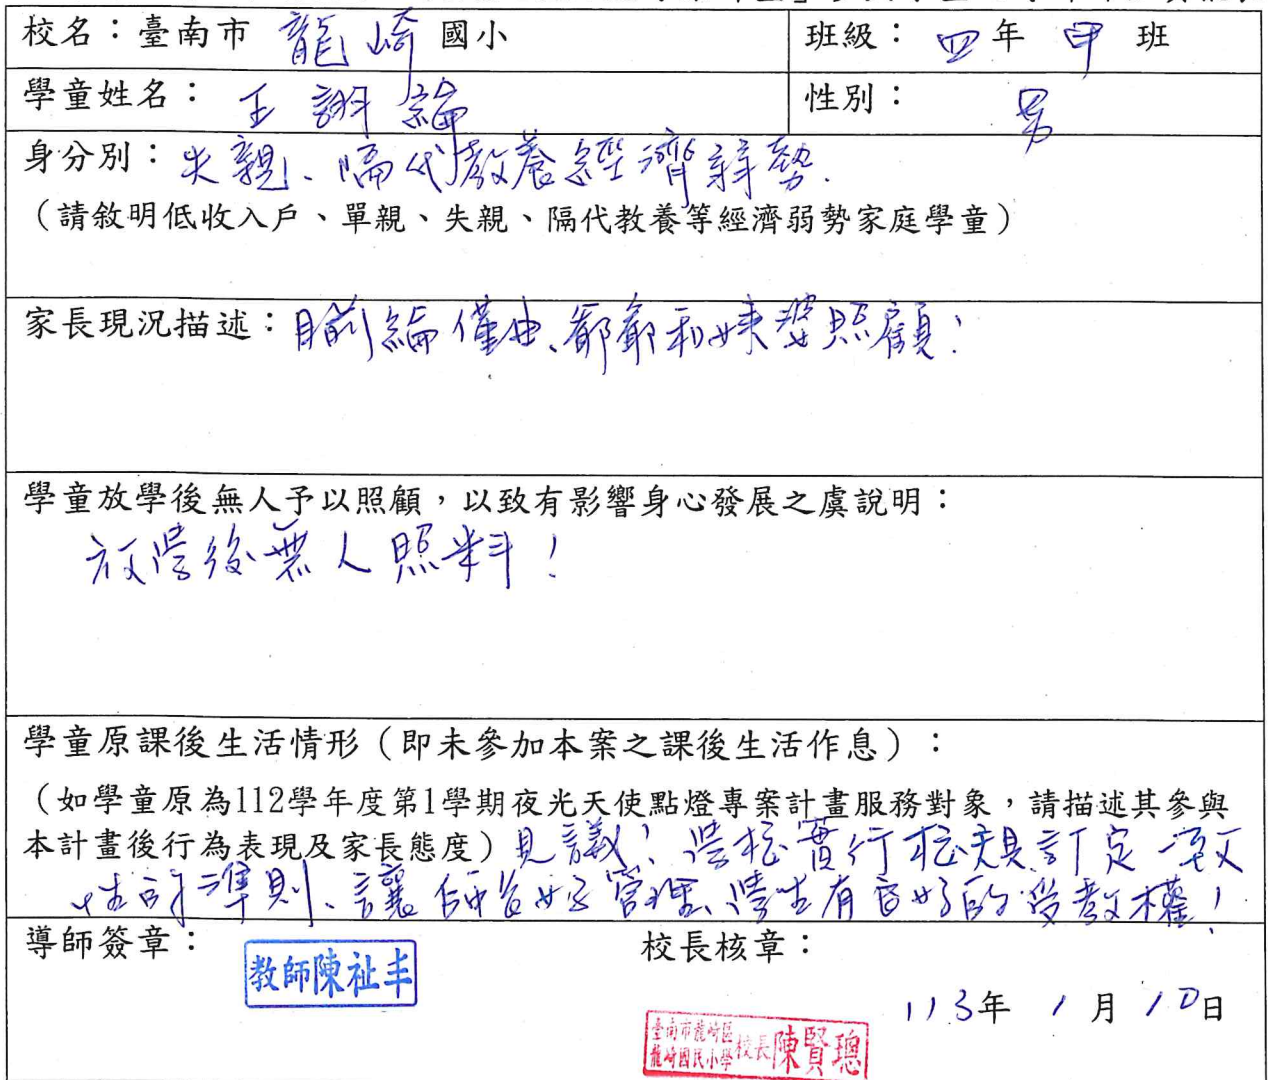 校名：臺南市 龍崎 國小 班級： 四 年 甲 班
學童姓名： 王 翊 綸 性別： 男
身分別：失親、隔代教養經濟弱勢.
（請敘明低收入戶、單親、失親、隔代教養等經濟弱勢家庭學童）
家長現況描述：目前綸僅由、爺爺和姨婆照顧！
學童放學後無人予以照顧，以致有影響身心發展之虞說明：
放學後無人照料！
學童原課後生活情形（即未參加本案之課後生活作息）：
（如學童原為112學年度第1學期夜光天使點燈專案計畫服務對象，請描述其參與
本計畫後行為表現及家長態度）見議！學校實行校規訂定一致
性的準則、讓師長好管理、學生有良好的受教權！
導師簽章： 校長核章：
教師陳祉丰
113年 1 月 10日
臺南市龍崎區
龍崎國民小學 校長 陳賢聰